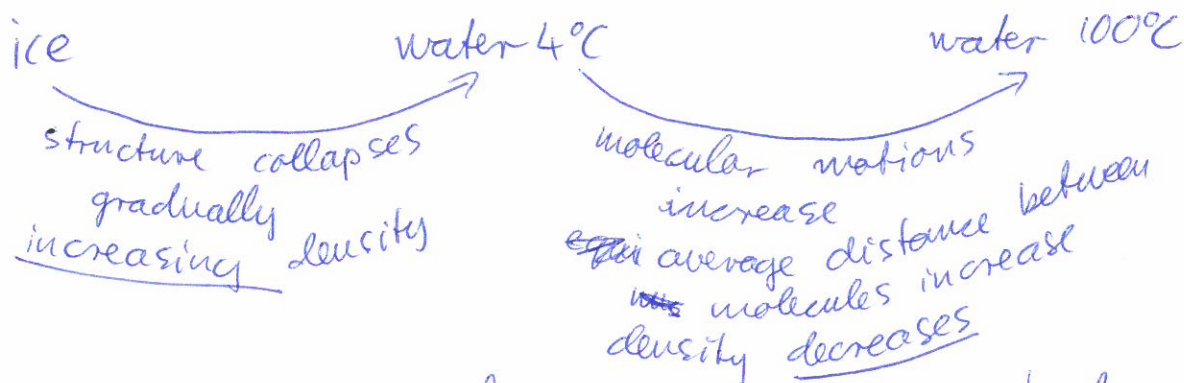 ice water 4°C water 100°C
structure collapses
gradually
increasing density
molecular motions
increase
average distance between
molecules increase
density decreases